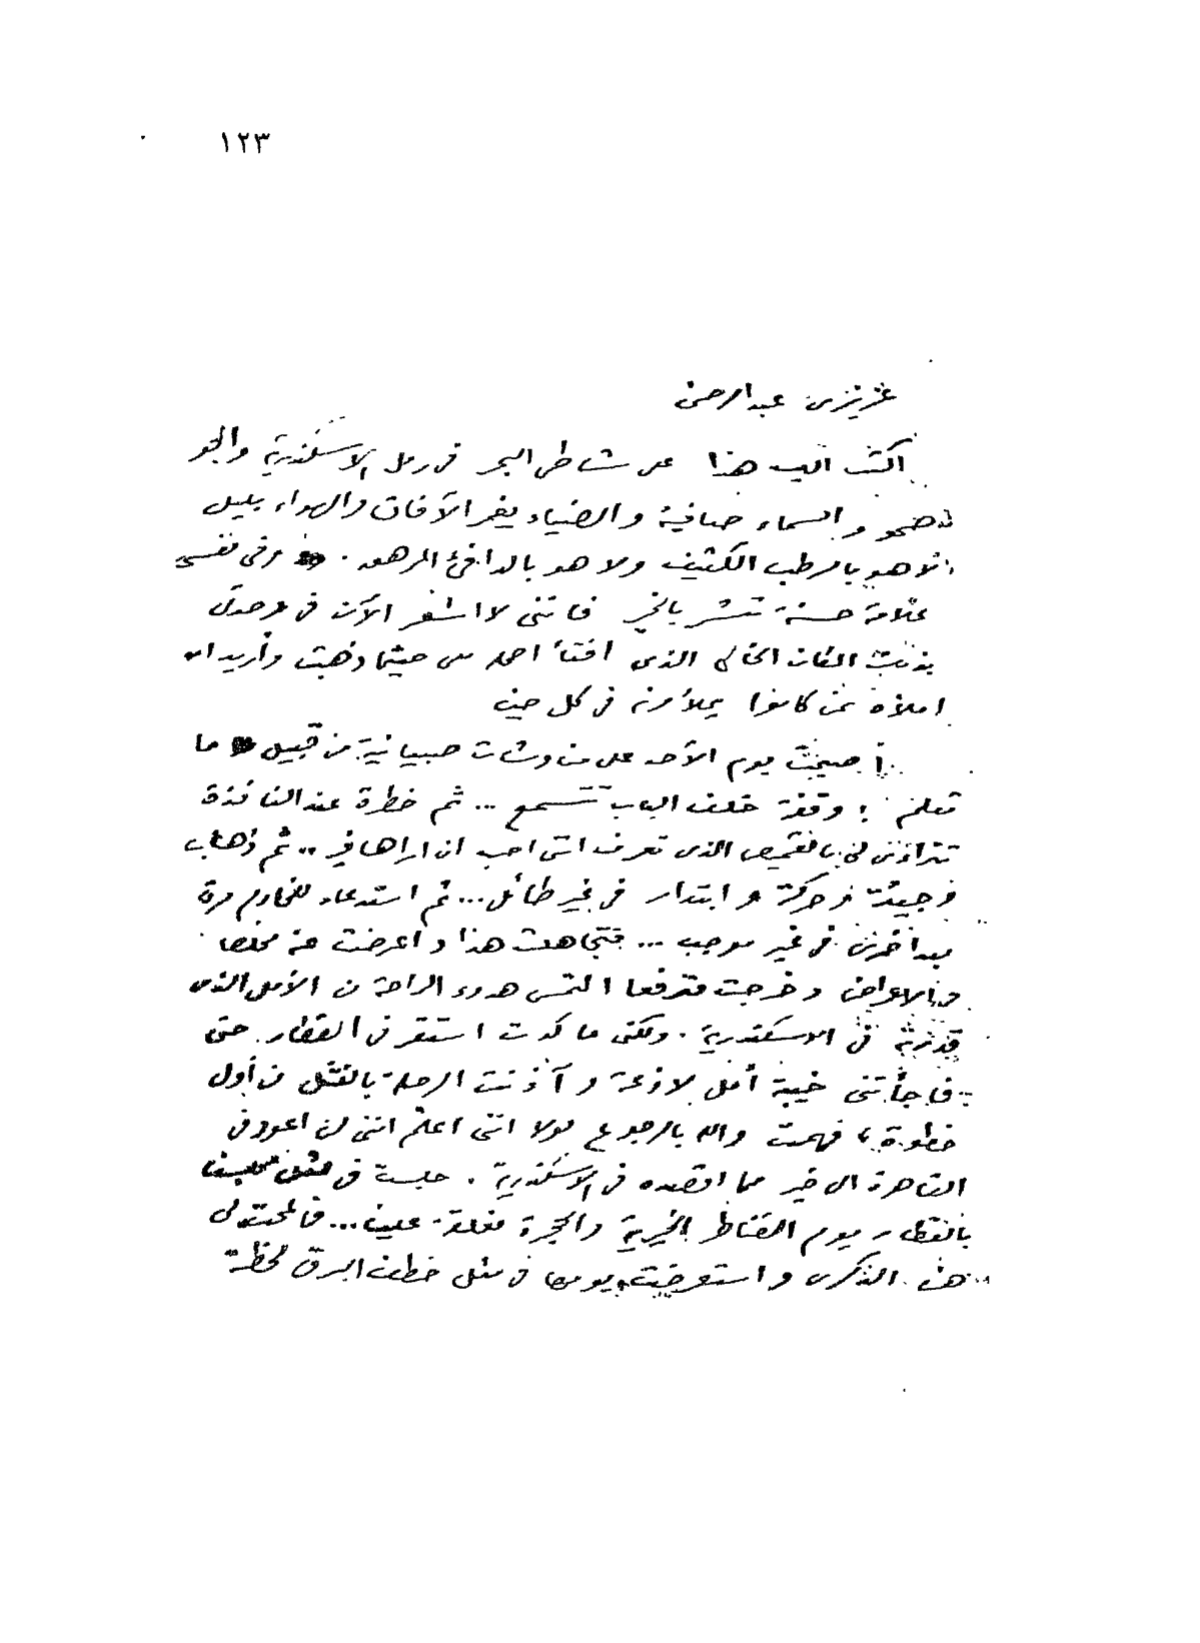 ١٢٣
عزيزى عبد الرحمن
اكتب اليك هذا على شاطئ البحر فى رمل الاسكندرية والجو
صحو والسماء صافية والضياء يغمر الآفاق والهواء بليل
لا هو بالرطب الكثيف ولا هو بالدافئ المرهق . وفى نفسى
علامة حسنة تبشر بالخير فاننى لا اشعر الآن فى
المكان الخالى الذى افتأ احمله معى حيثما ذهبت وأريد ان
املأه بمن كانوا يملأونه فى كل حين
أصبحت يوم الأحد على مناوشات صبيانية من قبيل ما
تعلم : وقفة خلف الباب تتسمع ... ثم خطرة عند النافذة
تتراءى لى بالقميص الذى تعرف اننى احب ان اراها فيه .. ثم ذهاب
وجيئة وحركة وابتدار فى غير طائل ... ثم استدعاء للخادم مرة
بعد اخرى فى غير موجب ... فتجاهلت هذا واعرضت عنه مخلصا
فى الاعراض وخرجت مترفعا التمس هدوء الراحة من الأمل الذى
فى الاسكندرية . ولكنى ما كدت استقر فى القطار حتى
فاجأتنى خيبة أمل لاذعة وآذنت الرحلة بالفشل من أول
خطوة ، فهممت والله بالرجوع لولا اننى اعلم اننى لن اعود فى
القاهرة الى خير مما اقصده فى الاسكندرية . جلست فى مثل مجلسنا
بالقطار يوم القناطر الخيرية والحجرة مغلقة علينا ... فلاحت لى
هذه الذكرى واستعرضت يومها فى مثل خطف البرق لحظة